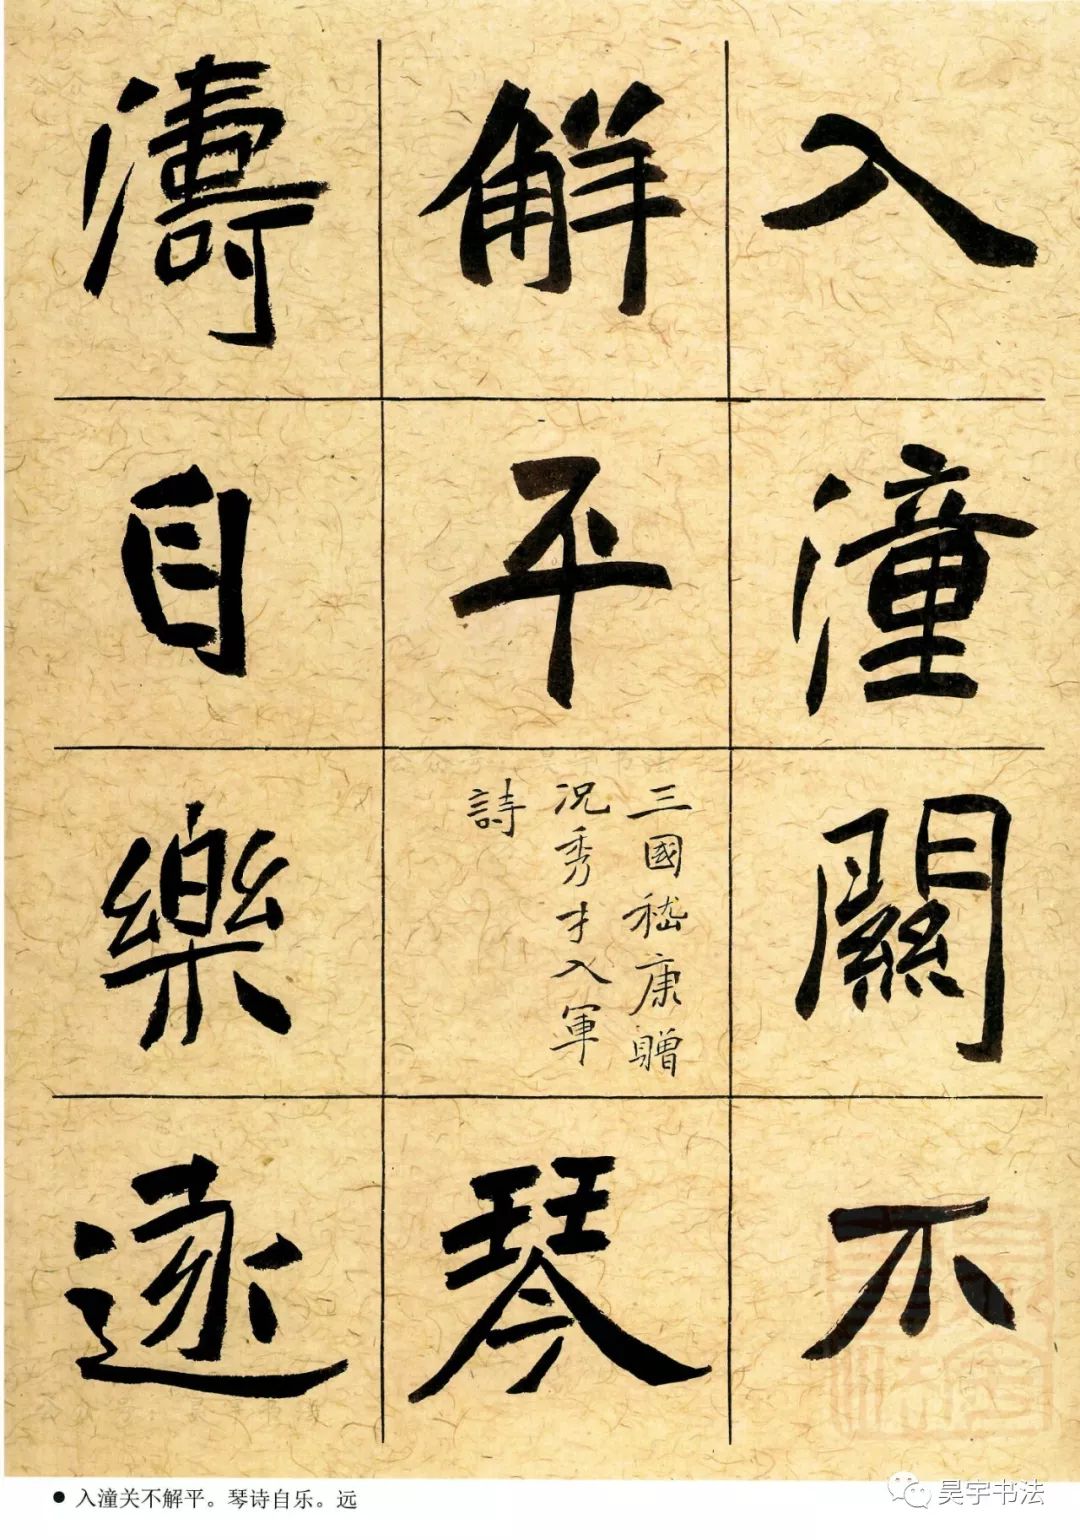 入潼關不
解平
三國嵇康贈
況秀才入軍
詩
琴
濤自樂遠
● 入潼关不解平。琴诗自乐。远
昊宇书法